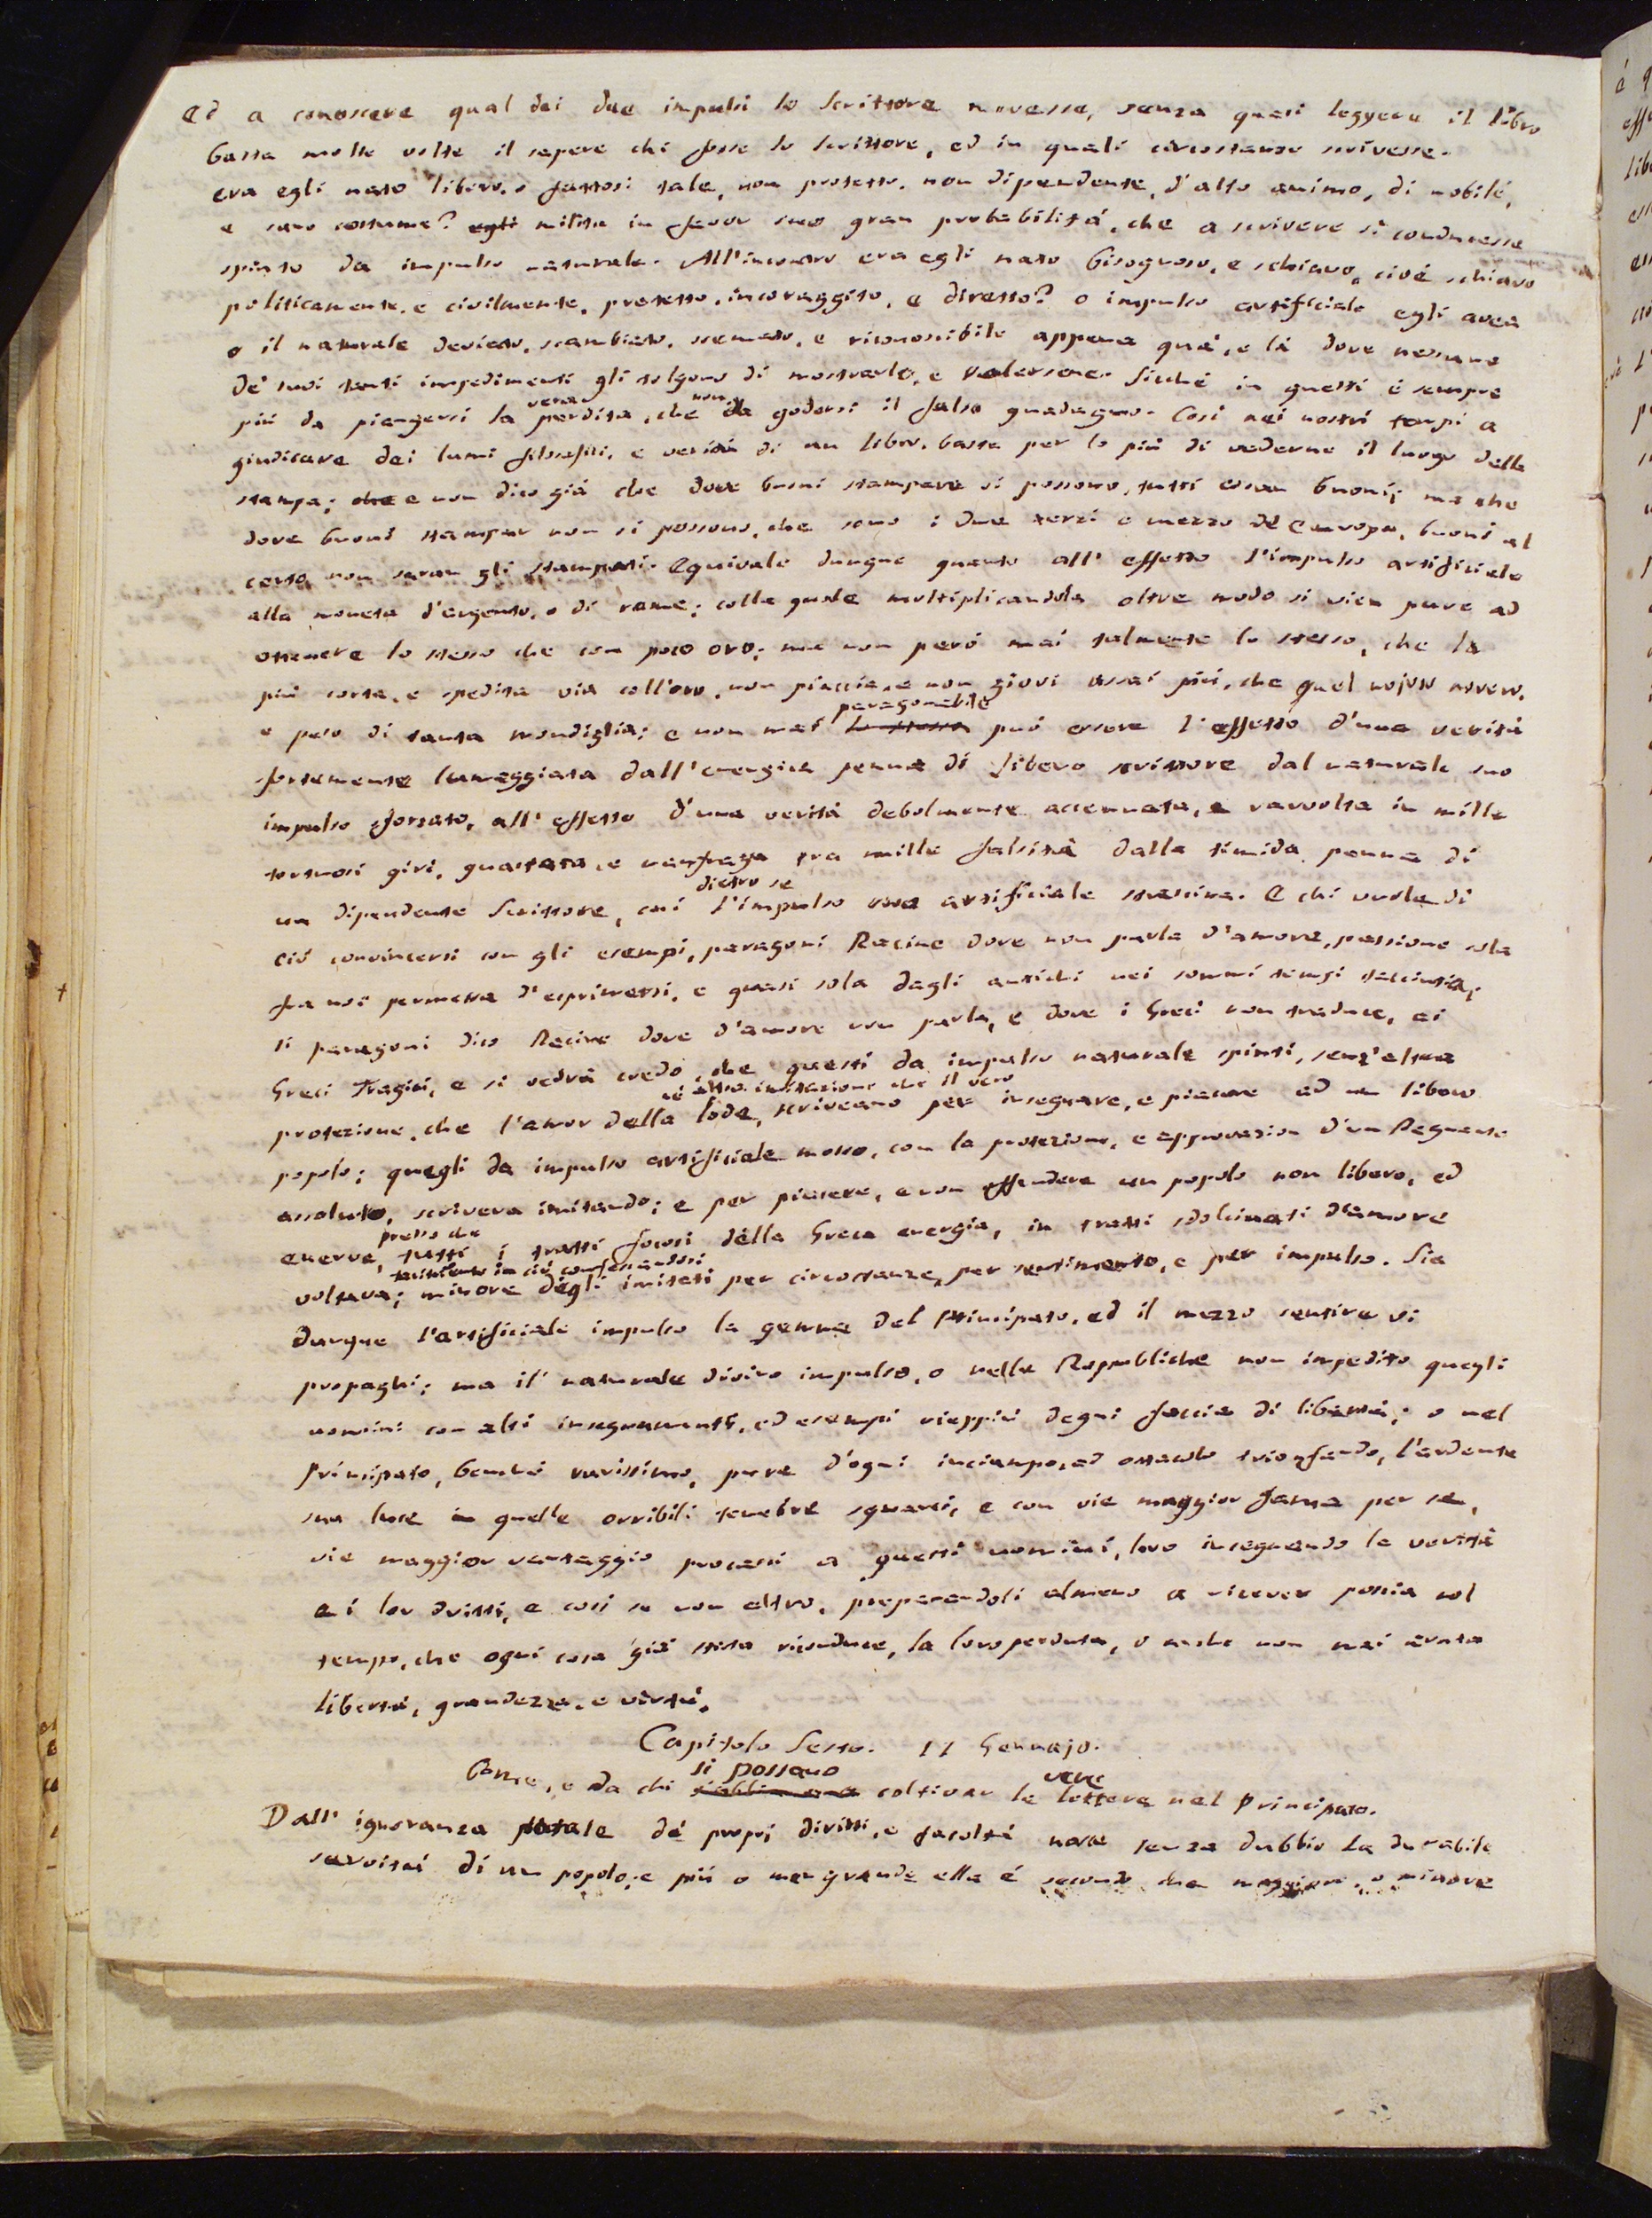 ed a conoscere qual dei due impulsi lo Scrittore movesse, senza quasi leggere il libro
basta molte volte il sapere chi fosse lo scrittore, ed in quali circostanze scrivesse.
era egli nato libero, o fattosi tale, non protetto, non dipendente, d'alto animo, di nobile,
e sano costume? egli milita in favor suo gran probabilità, che a scrivere si conducesse
spinto da impulso naturale. All'incontro era egli nato bisognoso, e schiavo, cioè schiavo
politicamente, e civilmente, protetto, incoraggito, e diretto? o impulso artificiale egli avea
o il naturale deviato, scambiato, scemato, e riconoscibile appena quà, e là dove nessuno
de' suoi tanti impedimenti gli tolgono di mostrarlo, e valersene. Sicché in questi è sempre
vera non
più da piangersi la perdita, che da godersi il falso guadagno. Così nei nostri tempi a
giudicare dei lumi filosofici, e verità di un libro, basta per lo più di vederne il luogo della
stampa; che e non dico già che dove buoni stampare si possono, tutti essan buoni; ma che
dove buoni stampar non si possono, che sono i due terzi e mezzo de Europa, buoni al
certo non saran gli stampati. Equivale dunque quanto all' effetto l'impulso artificiale
alla moneta d'argento, o di rame; colla quale moltiplicandola oltre modo si vien pure ad
ottenere lo stesso che con poco oro; ma non però mai talmente lo stesso, che la
più corta, e spedita via coll'oro, non piaccia, e non giovi assai più, che quel nojoso novero,
paragonabile
e peso di tanta mondiglia; e non mai lo stesso può essere l'effetto d'una verità
fortemente lumeggiata dall'energica penna di libero scrittore dal naturale suo
impulso sforzato, all' effetto d'una verità debolmente accennata, e ravvolta in mille
tortuosi giri, guastata, e naufraga tra mille falsità dalla timida penna di
dietro se
un dipendente Scrittore, cui l'impulso artificiale strascina. E chi vuole di
ciò convincersi con gli esempi, paragoni Racine dove non parla d'amore, passione sola
fra noi permessa d'esprimersi, e quasi sola dagli antichi nei sommi tempi taciuta,
si paragoni dico Racine dove d'amore non parla, e dove i Greci non traduce, ai
Greci Tragici, e si vedrà credo, che questi da impulso naturale spinti, senz'altra
né altra imitazione che il vero
protezione, che l'amor della lode, scriveano per insegnare, e piacere ad un libero
popolo; quegli da impulso artificiale mosso, con la protezione, e approvazion d'un Regnante
assoluto, scriveva imitando; e per piacere, e non offendere un popolo non libero, ed
presso che
enerve, tutti i tratti focosi della Greca energia, in tratti sdolcinati d'amore
tacitamente in ciò confessandosi
voltava; minore degli imitati per circostanze, per sentimento, e per impulso. Sia
dunque l'artificiale impulso la gemma del Principato, ed il mezzo sentire vi
propaghi; ma il naturale divino impulso, o nelle Repubbliche non impedito quegli
uomini con alti insegnamenti, ed esempi vieppiù degni faccia di libertà; o nel
Principato, benché rarissimo, pure d'ogni inciampo, ed ostacolo trionfando, l'ardente
sua luce in quelle orribili tenebre squarci, e con vie maggior fama per se,
vie maggior vantaggio procacci a questi uomini, loro insegnando le verità
e i lor dritti, e così se non altro, preparandoli almeno a ricever poscia col
tempo, che ogni cosa già stata riconduce, la loro perduta, o anche non mai avuta
libertà, grandezza, e virtù.
Capitolo Sesto. 11 Gennajo.
si possano vere
Come, e da chi coltivar le lettere nel Principato.
Dall' ignoranza totale de' propri diritti, e facoltà nasce senza dubbio la durabile
servitù di un popolo; e più o men grande ella è secondo che maggiore, o minore